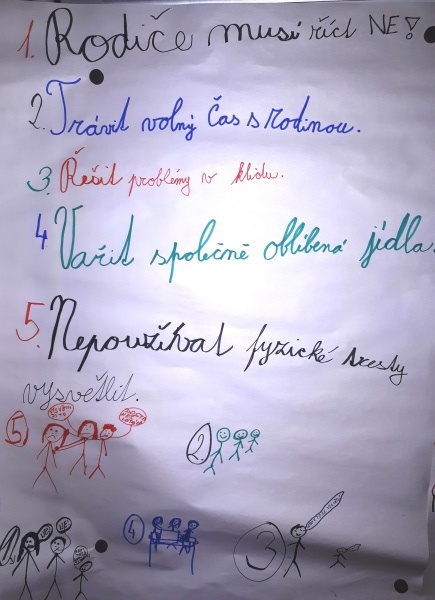 1. Rodiče musí říct NE!
2. Trávit volný čas s rodinou.
3. Řešit problémy v klidu.
4 Vařit společně oblíbená jídla.
5. Nepoužívat fyzické tresty
vysvětlit.
5
2
NE
NE
4
3